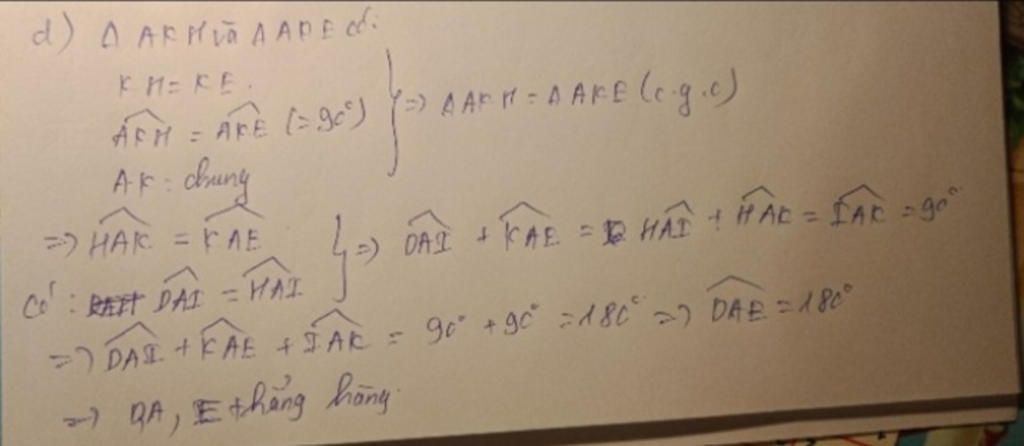 d) Δ AKH và Δ AKE có:
KH = KE.
$\widehat{AKH}$ = $\widehat{AKE}$ (= 90°)
AK : chung
} => Δ AKH = Δ AKE (c.g.c)
=> $\widehat{HAK}$ = $\widehat{KAE}$
Có : $\widehat{DAI}$ = $\widehat{HAI}$
} => $\widehat{DAI}$ + $\widehat{KAE}$ = $\widehat{HAI}$ + $\widehat{HAK}$ = $\widehat{IAK}$ = 90°
=> $\widehat{DAI}$ + $\widehat{KAE}$ + $\widehat{IAK}$ = 90° + 90° = 180° => $\widehat{DAE}$ = 180°
=> DA, E thẳng hàng.